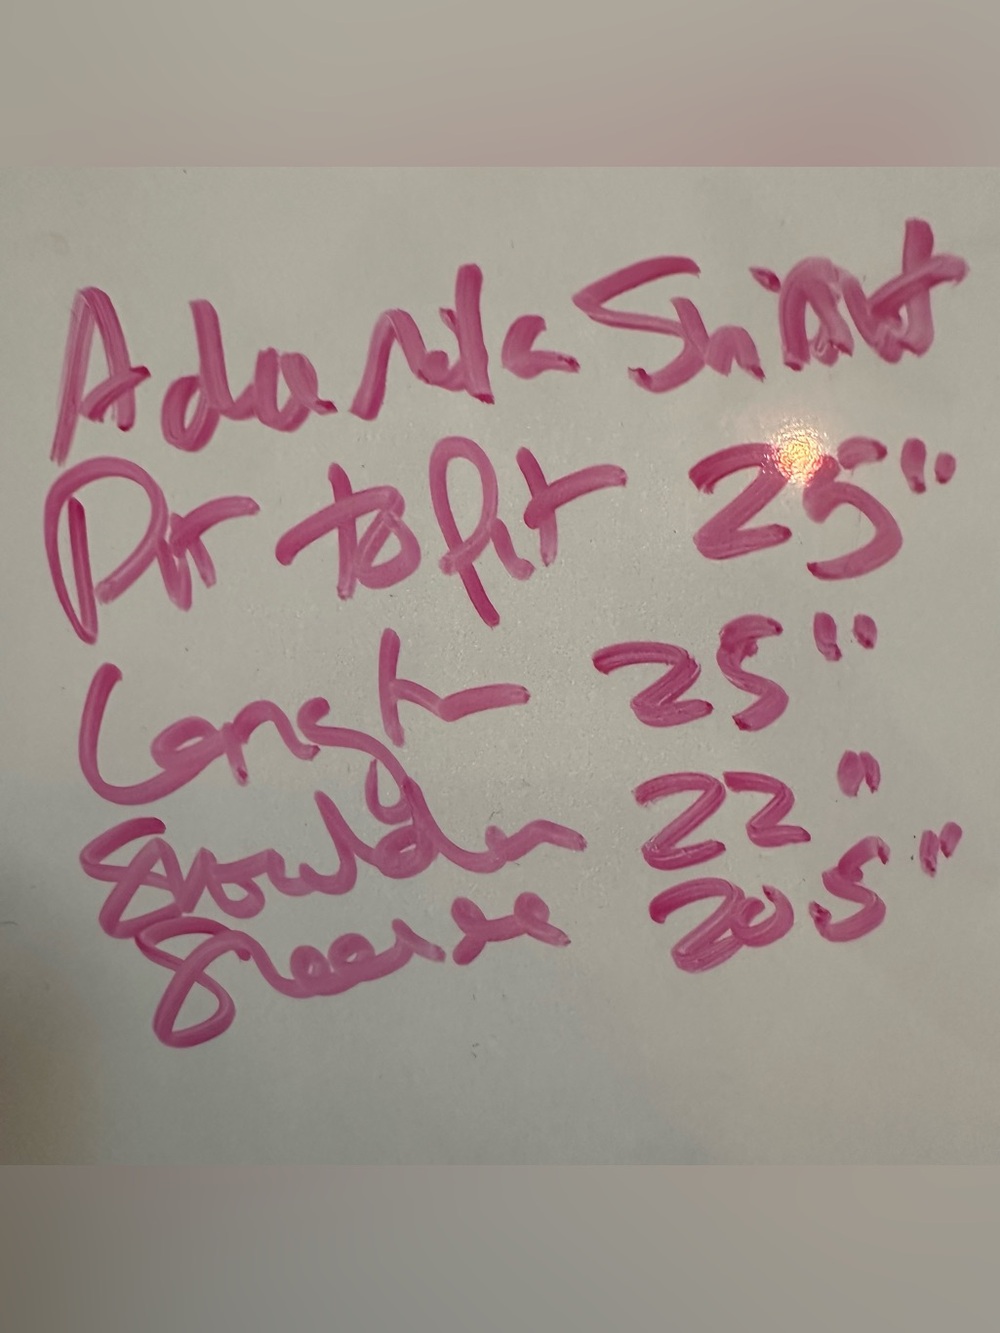 Shirt
Pit to Pit 25"
Length 25"
Shoulder 22"
Sleeve 20.5"